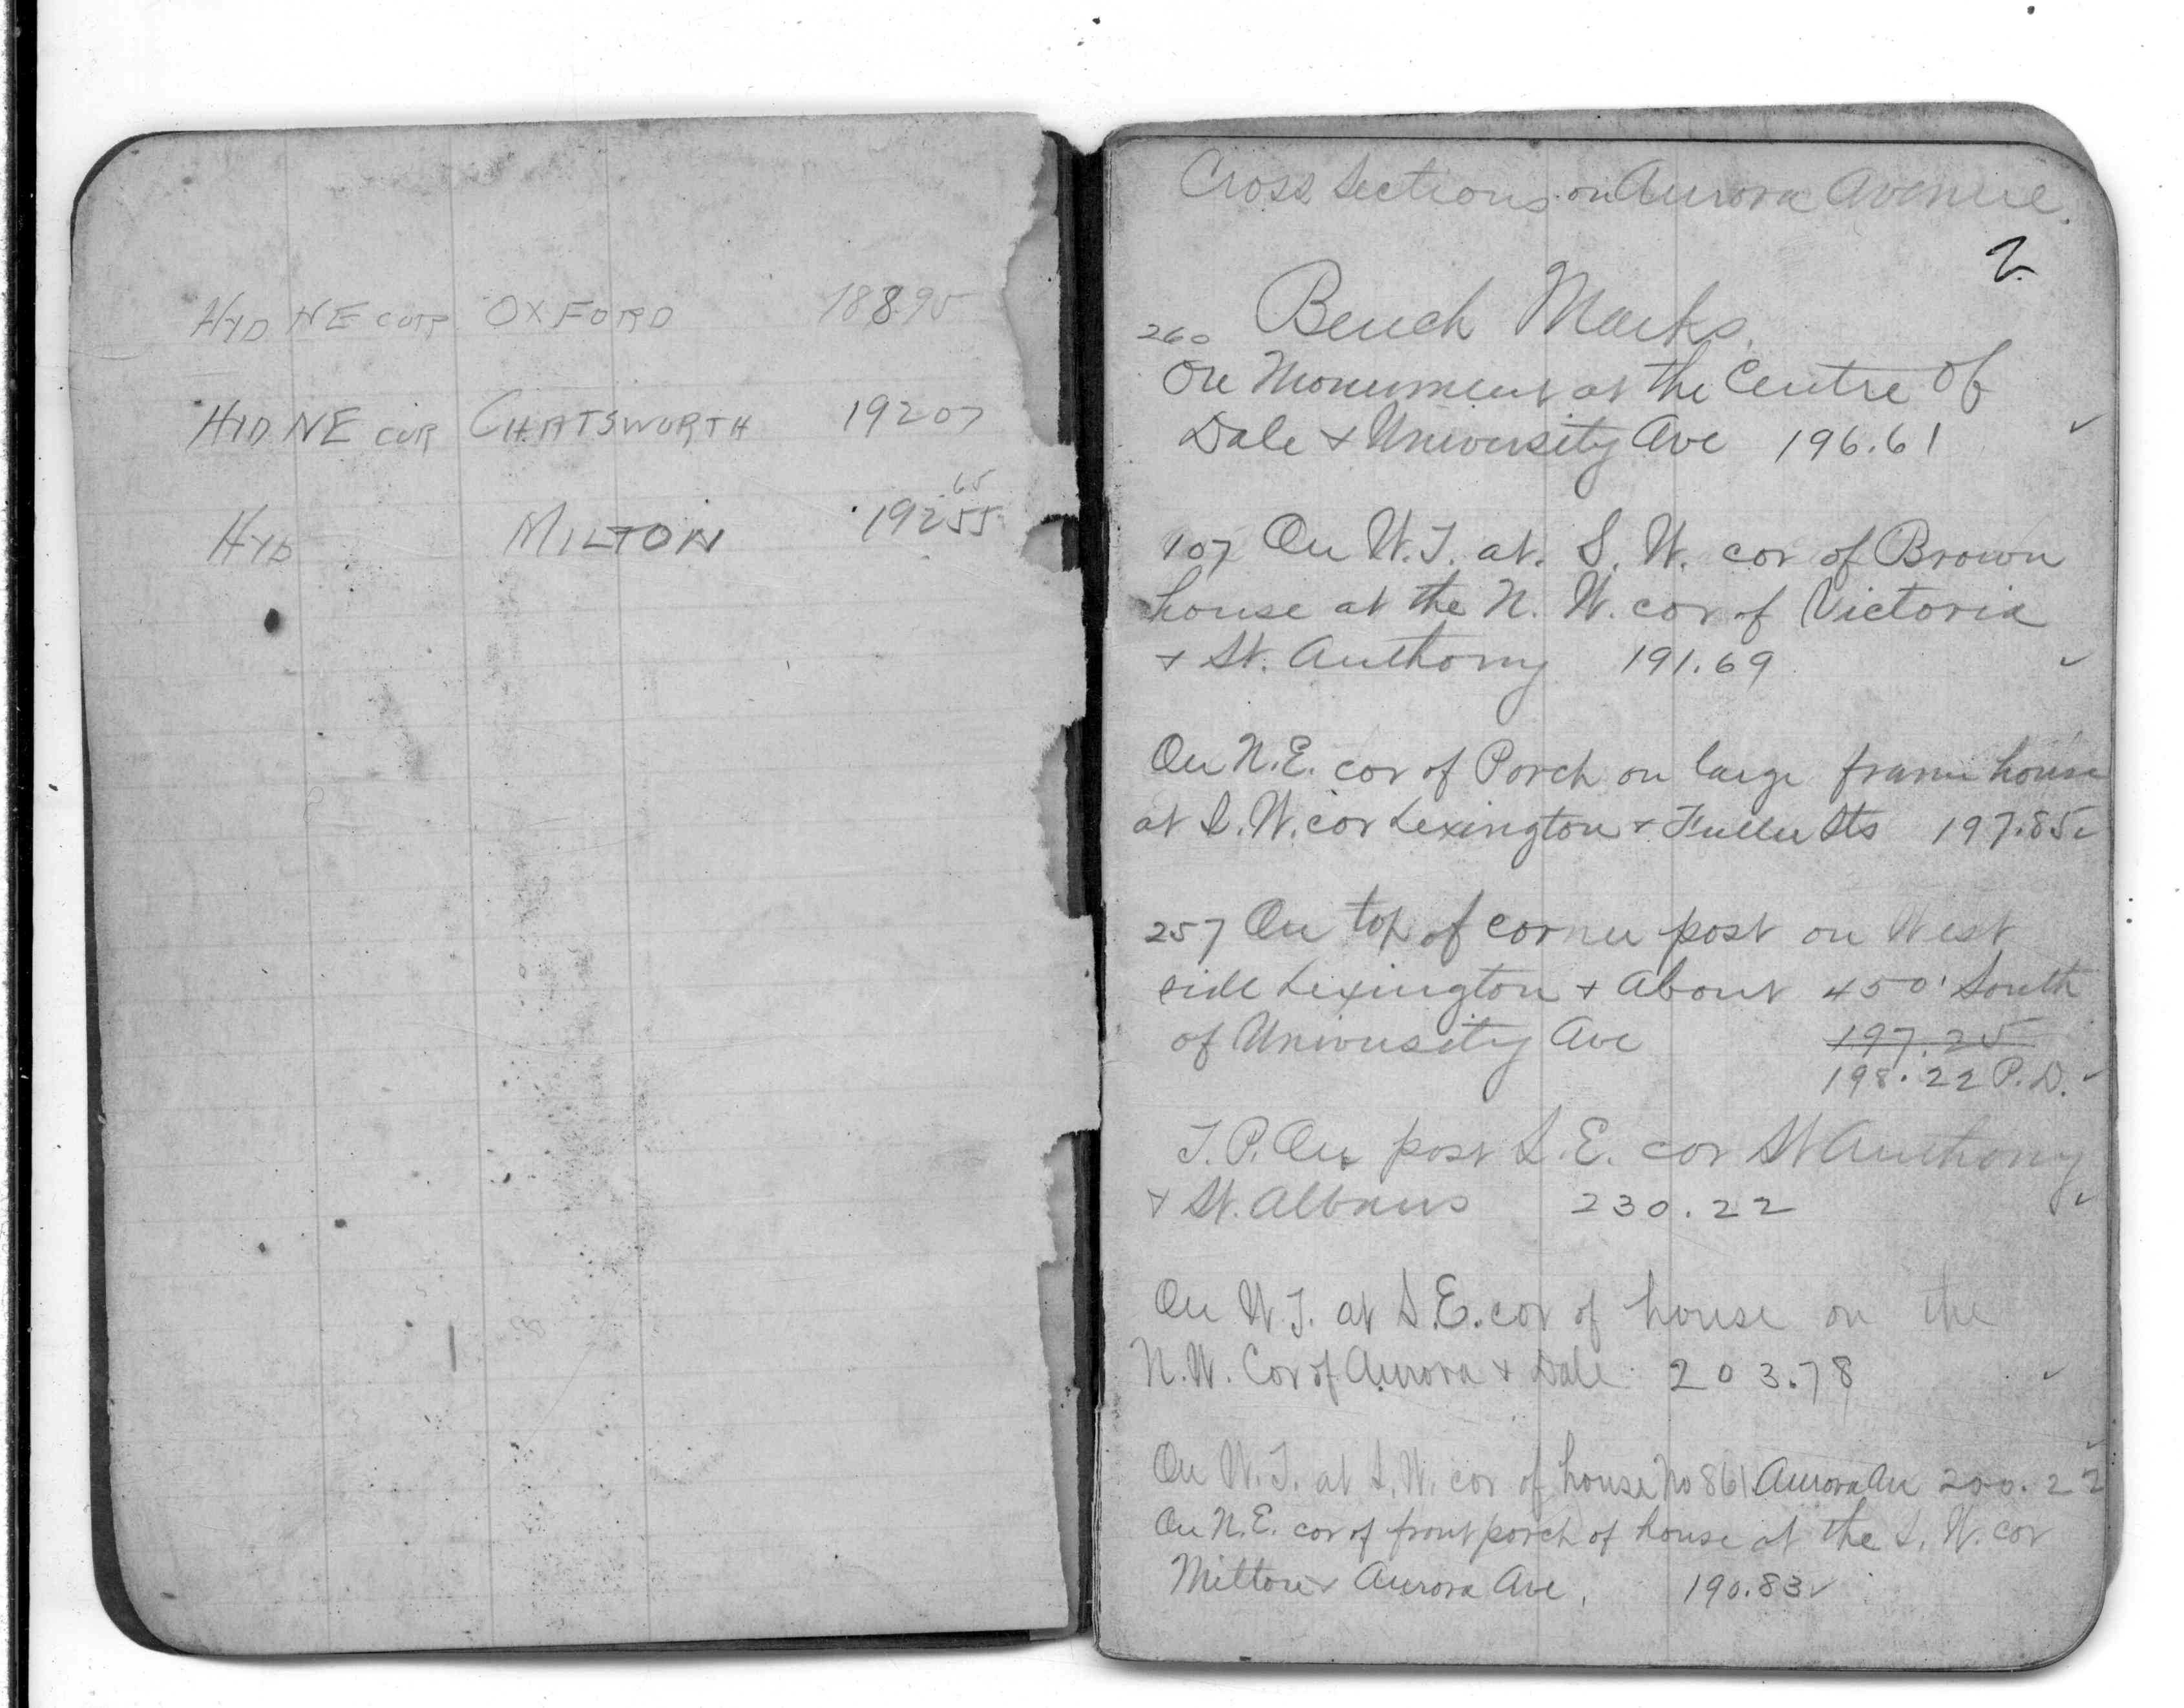 HYD NE COR OXFORD 18890
HYD NE COR CHATSWORTH 19207
65
HYD MILTON 19255
Cross Sections on Aurora Avenue.
2
Bench Marks.
260
On Monument at the Centre of
Dale + University Ave 196.61 ✓
107 On W.T. at. S. W. cor of Brown
house at the N. W. cor of Victoria
+ St. Anthony 191.69 ✓
On N.E. cor of Porch on large frame house
at S. W. cor Lexington + Fuller Sts 197.85 ✓
257 On top of corner post on West
side Lexington + About 450' South
of University Ave 197.25
198.22 P.D. ✓
T.P. On post S.E. cor St Anthony
+ St. Albans 230.22 ✓
On W.T. at S.E. cor of house on the
N.W. Cor of Aurora + Dale 203.78 ✓
On W.T. at S.W. cor of house No 861 Aurora Av 200.22 ✓
On N.E. cor of front porch of house at the S. W. cor
Milton + Aurora Ave. 190.83 ✓